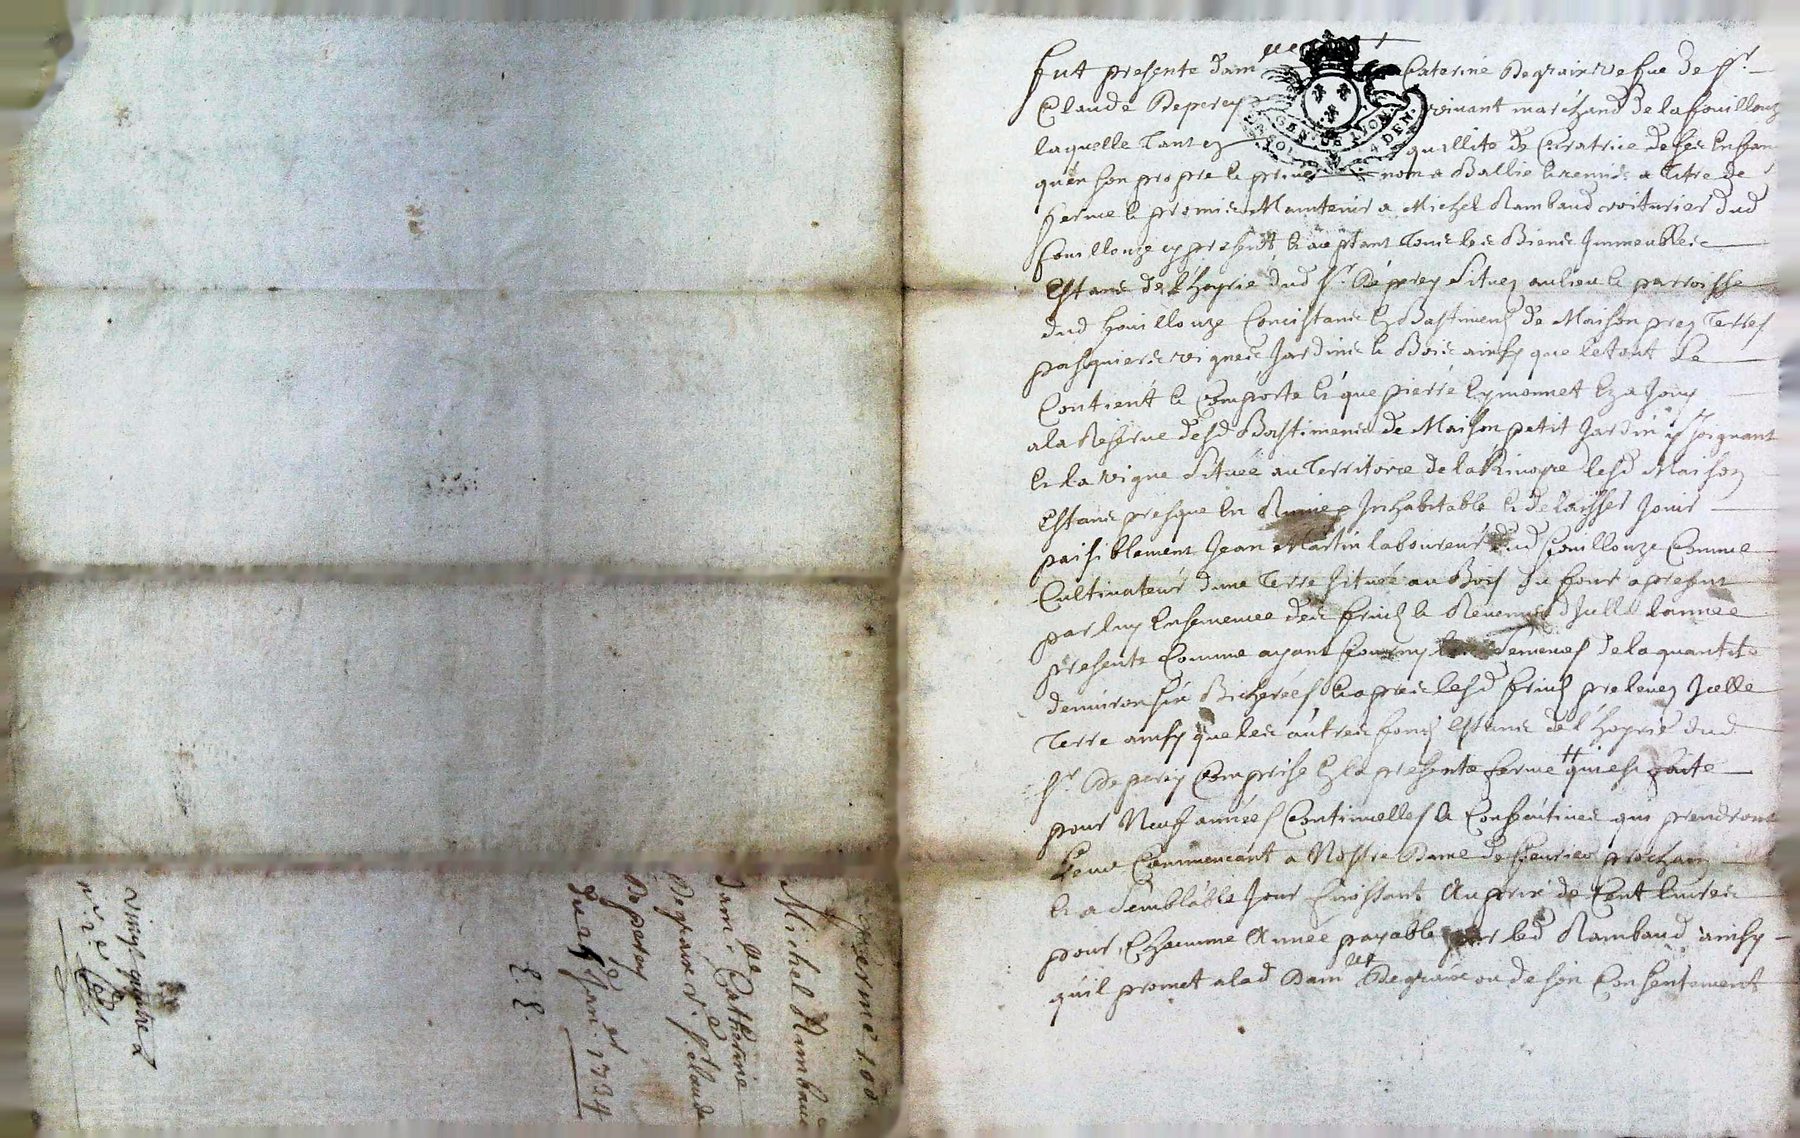 fut presente dam.lle Caterine Degraix vefue de Sr.
Claude Deperey vivant marchand de la fouillouz
laquelle Tant en quallite de Curatrice de ses Enfan
qu'en son propre & prive nom a Ballié & remis a Titre de
ferme & promis Maintenir a Michel Rambaud voiturier dud
fouillouze cy present & aceptant Tous les Biens Immeubles
Estans de l'hoyrie dud Sr. Deperey Situez au lieu & parroisse
dud fouillouze Concistans En Bastimens de Maison prez Terres
pasquiers vignes Jardins & Bois ainsy que le tout Se
Contient & Comporte & que pierre Eymonnet En a Jouy
a la Reserve desd Bastimens de Maison petit Jardin y Joignant
& la vigne Situee au Territoire de la lesd Maison
Estans presque En Ruine & Inhabitable & de laisser Jouir
paisiblement Jean Martin laboureur dud fouillouze Comme
Cultivateur d'une Terre Situee au Bois du four a present
par luy Ensemencee des fruits & Revenus d'Icelle l'annee
presente Comme ayant fourny les Semences de la quantite
d'environ six Bicherées & apres lesd fruits prelevez Icelle
Terre ainsy que les autres fonds Estans de l'hoyrie dud
Sr. Deperey Comprise En la presente ferme # qui est faite
pour Neuf années Continuelles & Consecutives qui prendront
Leur Commencant a Nostre Dame de fevrier prochain
& a Semblable Jour finissant Au prix de Cent livres
pour Chacunne Année payable par led Rambaud ainsy
qu'il promet a lad Dam.lle Degraix ou de son Consentement
GEN DE LYON
4 DEN.
ferme 100
Michel Rambaud
Dam.lle Catherine
Degraix Ve. Sr. Claude
Deperey
Du 29 Jan.er 1734
E. E.
vingt quatre